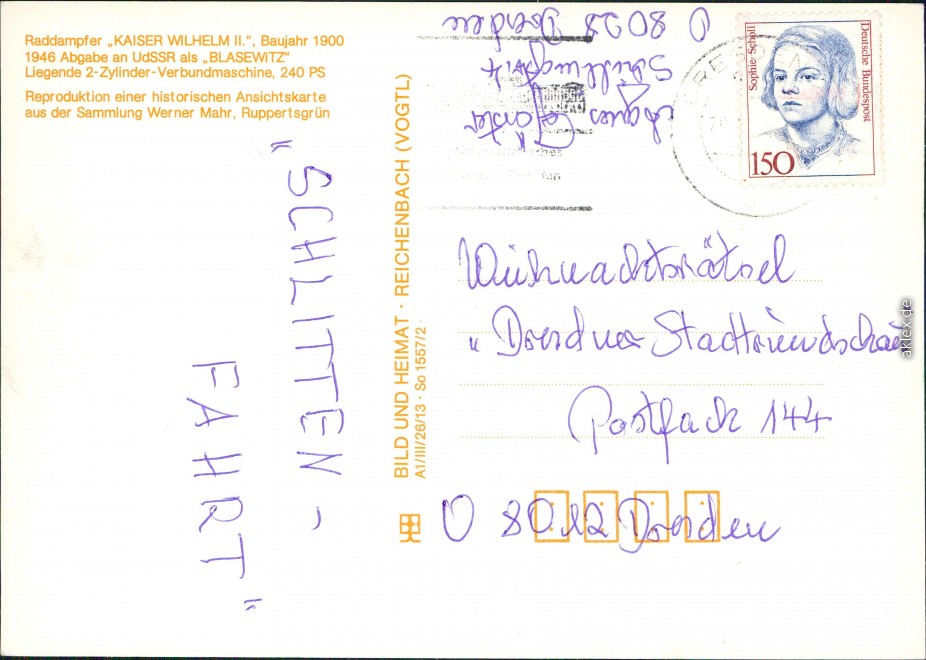 Raddampfer „KAISER WILHELM II.“, Baujahr 1900
1946 Abgabe an UdSSR als „BLASEWITZ“
Liegende 2-Zylinder-Verbundmaschine, 240 PS
Reproduktion einer historischen Ansichtskarte
aus der Sammlung Werner Mahr, Ruppertsgrün
"SCHLITTEN-
FAHRT"
BILD UND HEIMAT · REICHENBACH (VOGTL)
A1/III/26/13 · So 1557/2
Agnes
O 8028 Dresden
Sophie Scholl
Deutsche Bundespost
150
Weihnachtsrätsel
"Dresdner Stadtrundschau
Postfach 144
O 8012 Dresden
aklex.de